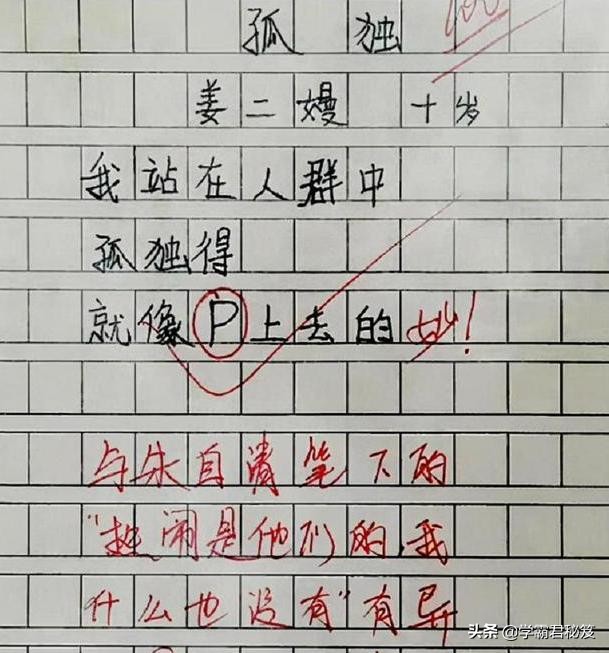 孤独 100
姜二嫚 十岁
我站在人群中
孤独得
就像P上去的 妙!
与朱自清笔下的
"热闹是他们的,我
什么也没有"有异
头条 @学霸君秘笈